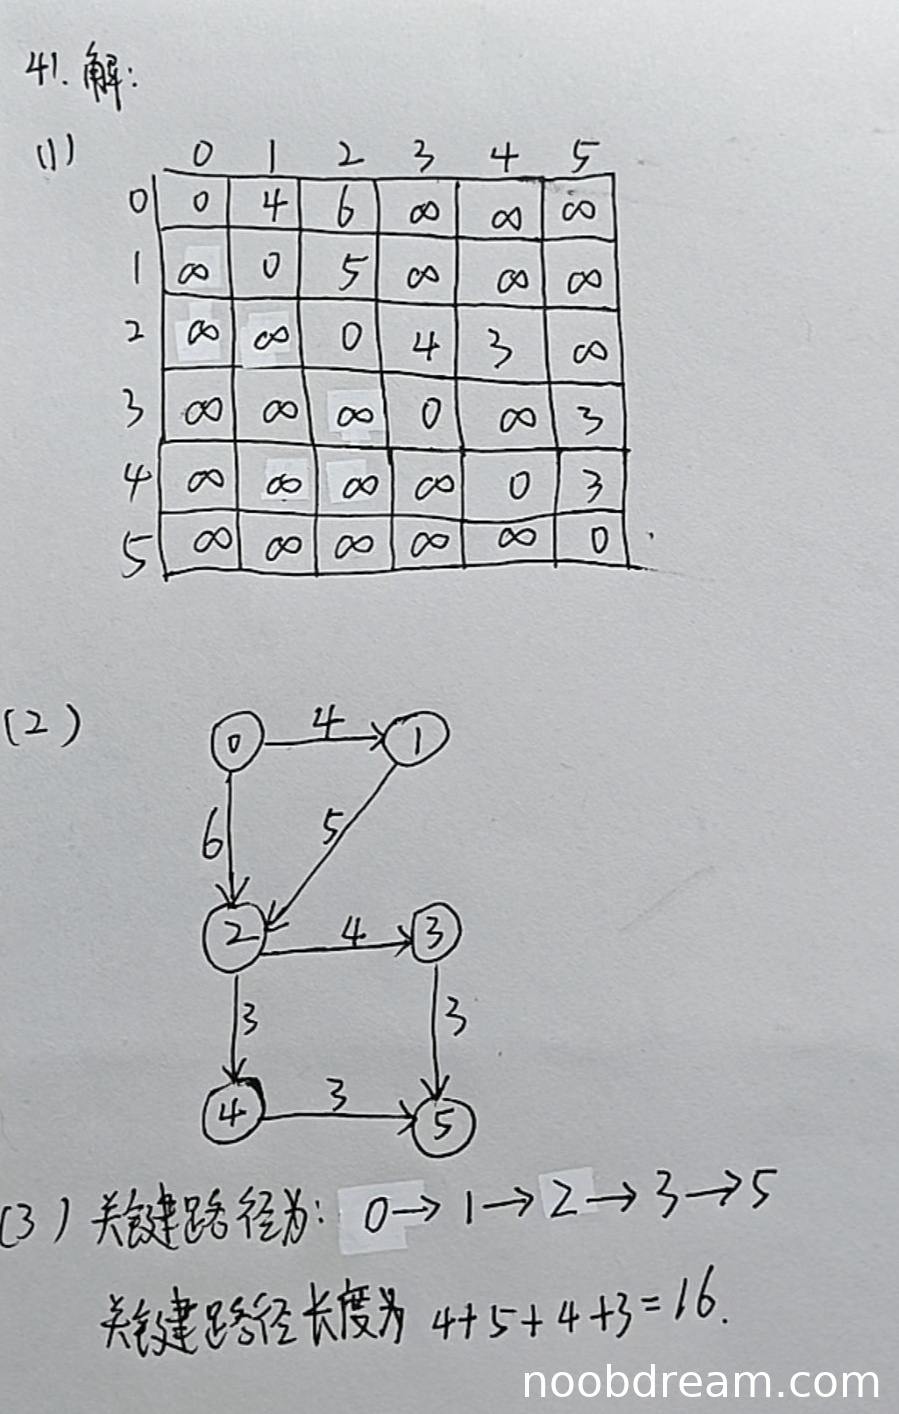 41. 解:
(1)
0 1 2 3 4 5
0 0 4 6 ∞ ∞ ∞
1 ∞ 0 5 ∞ ∞ ∞
2 ∞ ∞ 0 4 3 ∞
3 ∞ ∞ ∞ 0 ∞ 3
4 ∞ ∞ ∞ ∞ 0 3
5 ∞ ∞ ∞ ∞ ∞ 0
(2)
0 4 1
6 5
2 4 3
3 3
4 3 5
(3) 关键路径为: 0→1→2→3→5
关键路径长度为 4+5+4+3=16.
noobdream.com